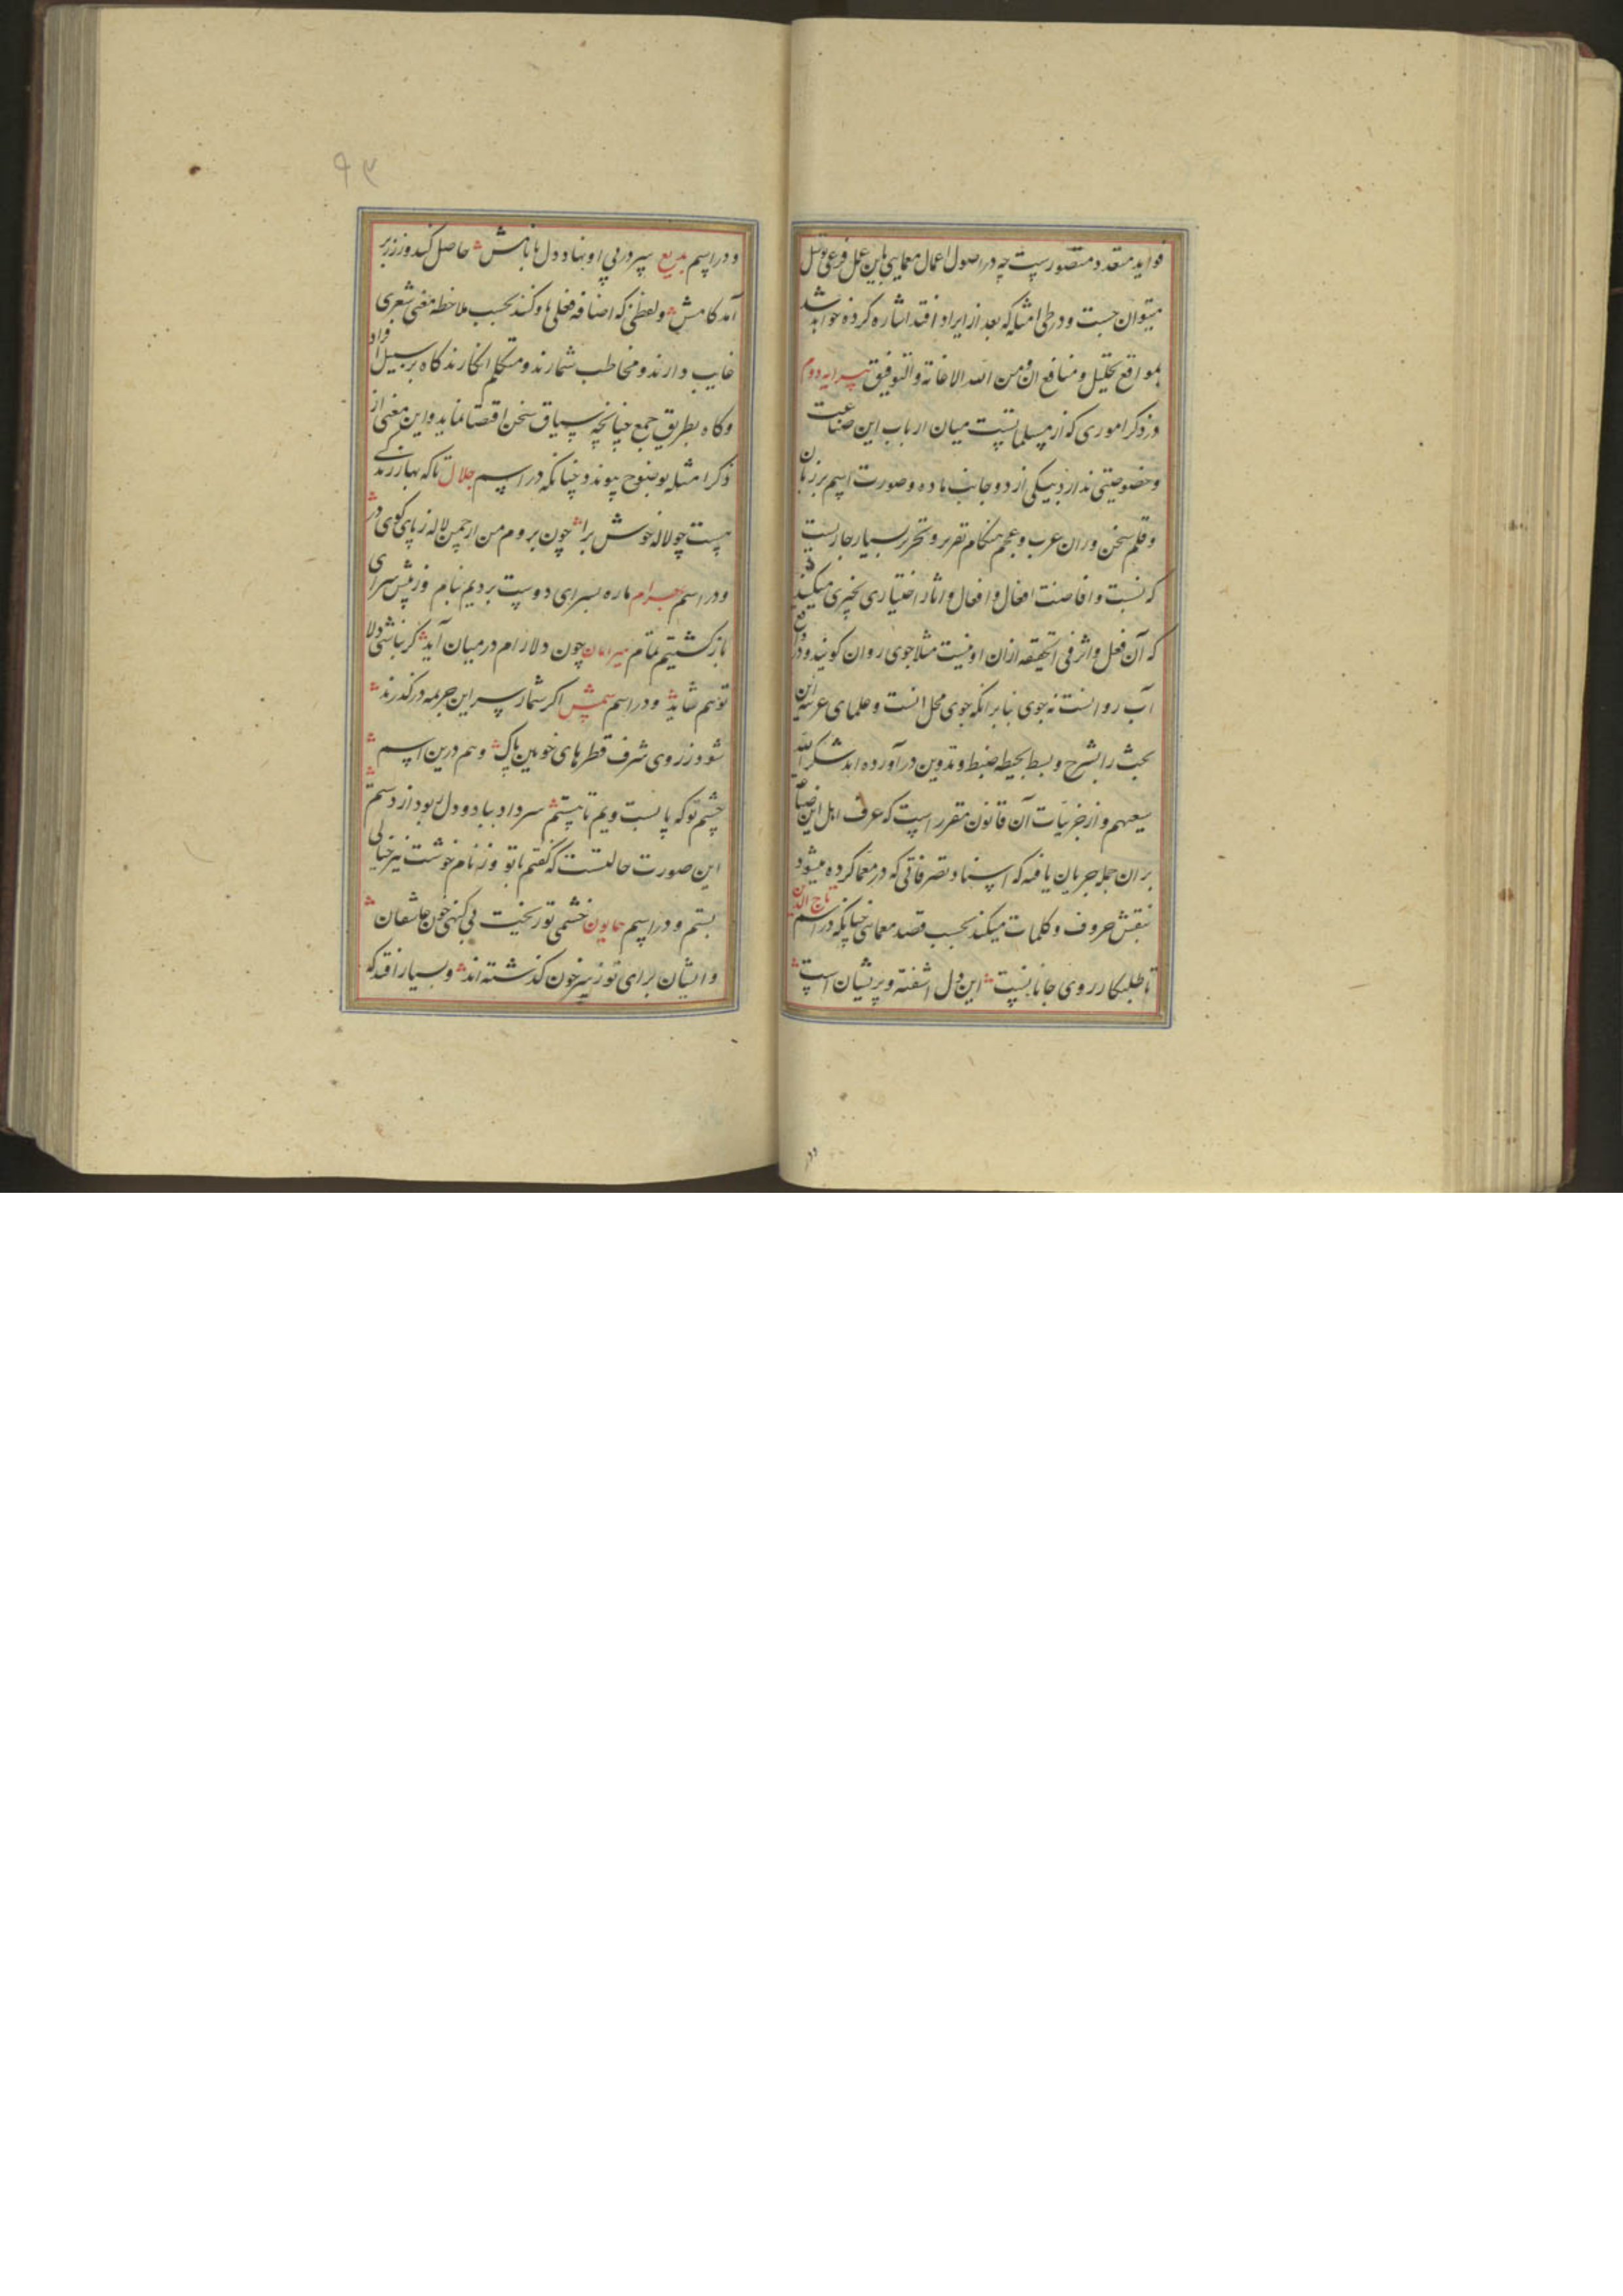 فواید متعدد متصورست چه در اصول اعمال معمایی باین عمل فرعی توسل
میتوان جست و در طی امثله که بعد از ایراد افتد اشاره کرده خواهد شد
بمواقع تحلیل و منافع آن ومن الله الاعانة والتوفیق پیرایه دوم
در ذکر اموری که از مسلماتست میان ارباب این صناعت
وخصوصیتی ندارد بیکی از دو جانب ماده وصورت اسم بر زبان
وقلم سخن وران عرب وعجم هنگام تقریر وتحریر بسیار جاریست
که نسبت واضافت افعال وآثار اختیاری بچیزی میکنند
که آن فعل واثر فی الحقیقه ازان او نیست مثلا جوی روان کویند ودر واقع
آب روانست نه جوی بنابر انکه جوی محل انست وعلمای عربیه این
بحث را بشرح وبسط بحیطه ضبط وتدوین درآورده اند شکر الله
سعیهم واز جزئیات آن قانون مقرر است که عرف اهل این صناعة
بران جمله جریان یافته که اسناد تصرفاتی که در معما کرده میشود
بنقش حروف وکلمات میکنند بحسب قصد معمایی چنانکه در اسم تاج الدین
تا طلبکار روی جانانست این دل اشفته وپریشان است
ودر
۹۳
ودر اسم بدیع سپر در پی او نهاد ودل حاصل کند وز زبر
آمد کامش ولفظی که اضافه فعلی باو کنند بحسب ملاحظه معنی شعری
غایب دارند ومخاطب شمارند ومتکلم انکارند کاه بر سبیل افراد
وکاه بطریق جمع چنانچه سیاق سخن اقتضا نماید واین معنی از
ذکر امثله بوضوح پیوندد چنانکه در اسم جلال تا که بهار زندکی
هست چو لاله خوش برا چون بروم من از چمن لاله ز پای کوی در
ودر اسم بهرام ماره بسرای دوست بردیم بنام وز پیش سرای
بازکشتیم تمام میرامان چون دلارام در میان آید کر نباشی دلا
تو هم شاید ودر اسم شمس اکر شمار سر این جریمه درکذرند
شود ز روی شرف قطرهای خونین پاک وهم درین اسم
چشم تو که پا بست ویم تا هستم سر داد بباد ودل ربود از دستم
این صورت حالتست که کفتم با تو وز نام خوشت نیز خیالی
بستم ودر اسم همایون خشمی تو ریخت بی کنهی خون عاشقان
وایشان برای تو ز سر خون کذشته اند وبسیار افتد که